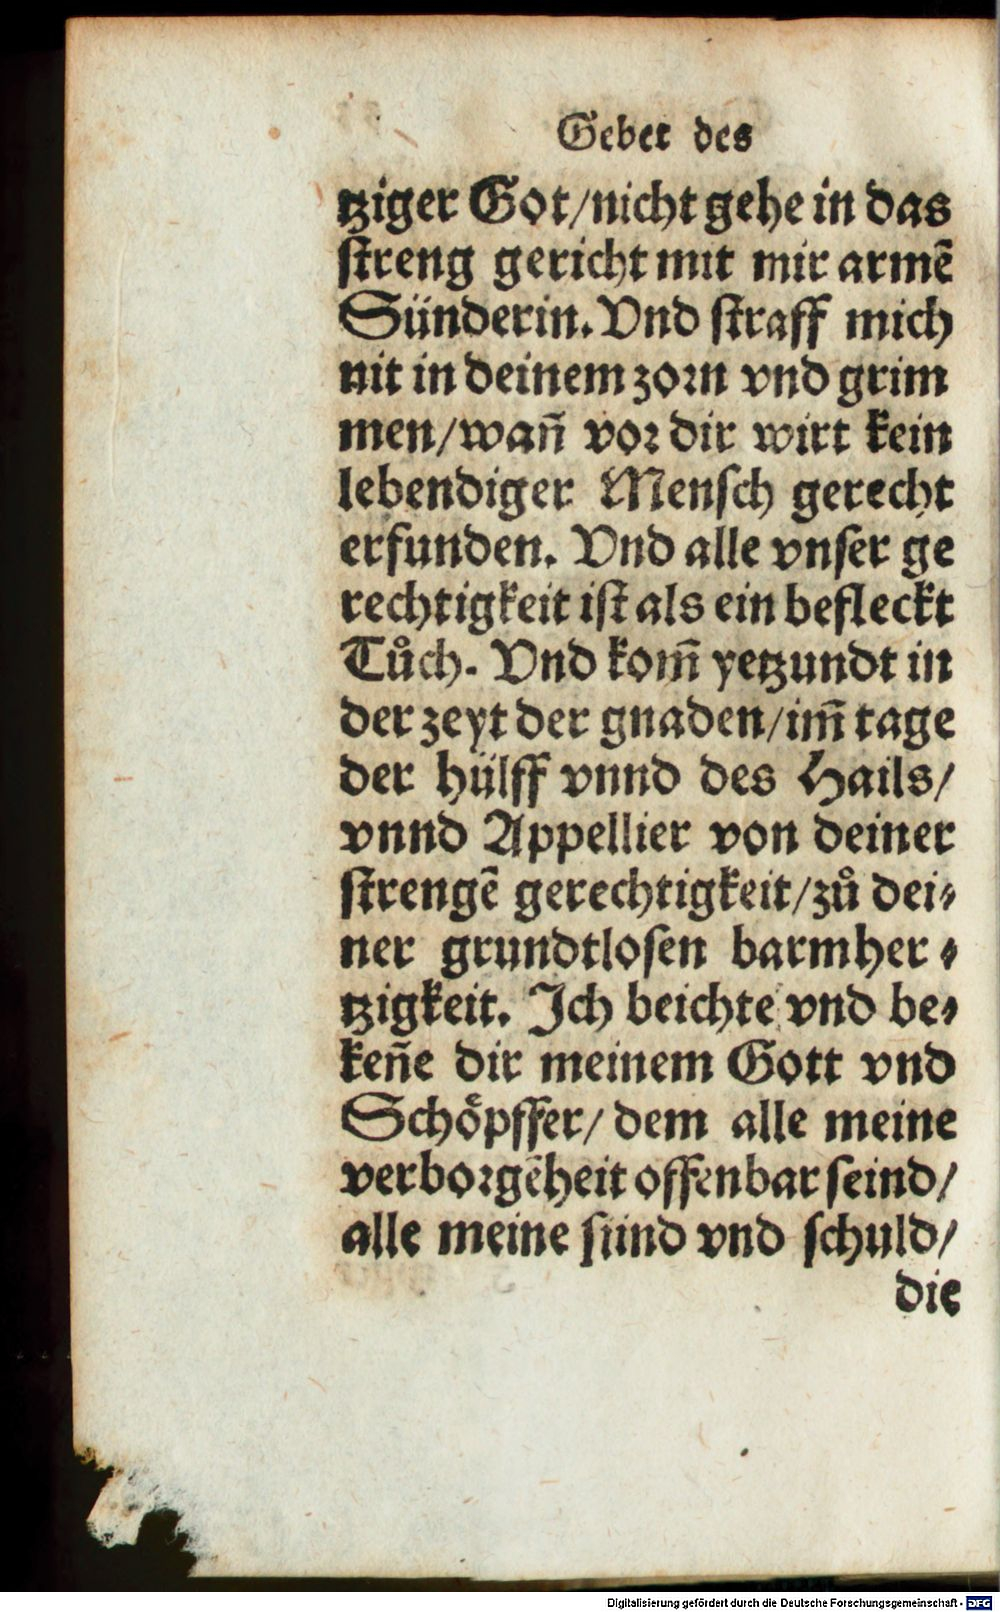 Gebet des
tziger Got/nicht gehe in das
streng gericht mit mir armē
Sünderin. Vnd straff mich
nit in deinem zorn vnd grim
men/wañ vor dir wirt kein
lebendiger Mensch gerecht
erfunden. Vnd alle vnser ge
rechtigkeit ist als ein befleckt
Tůch. Vnd kom̄ yetzundt in
der zeyt der gnaden/im̄ tage
der hülff vnnd des Hails/
vnnd Appellier von deiner
strengē gerechtigkeit/zů dei⸗
ner grundtlosen barmher⸗
tzigkeit. Ich beichte vnd be⸗
keñe dir meinem Gott vnd
Schöpffer/ dem alle meine
verborgēheit offenbar seind/
alle meine sünd vnd schuld/
die
Digitalisierung gefördert durch die Deutsche Forschungsgemeinschaft - DFG